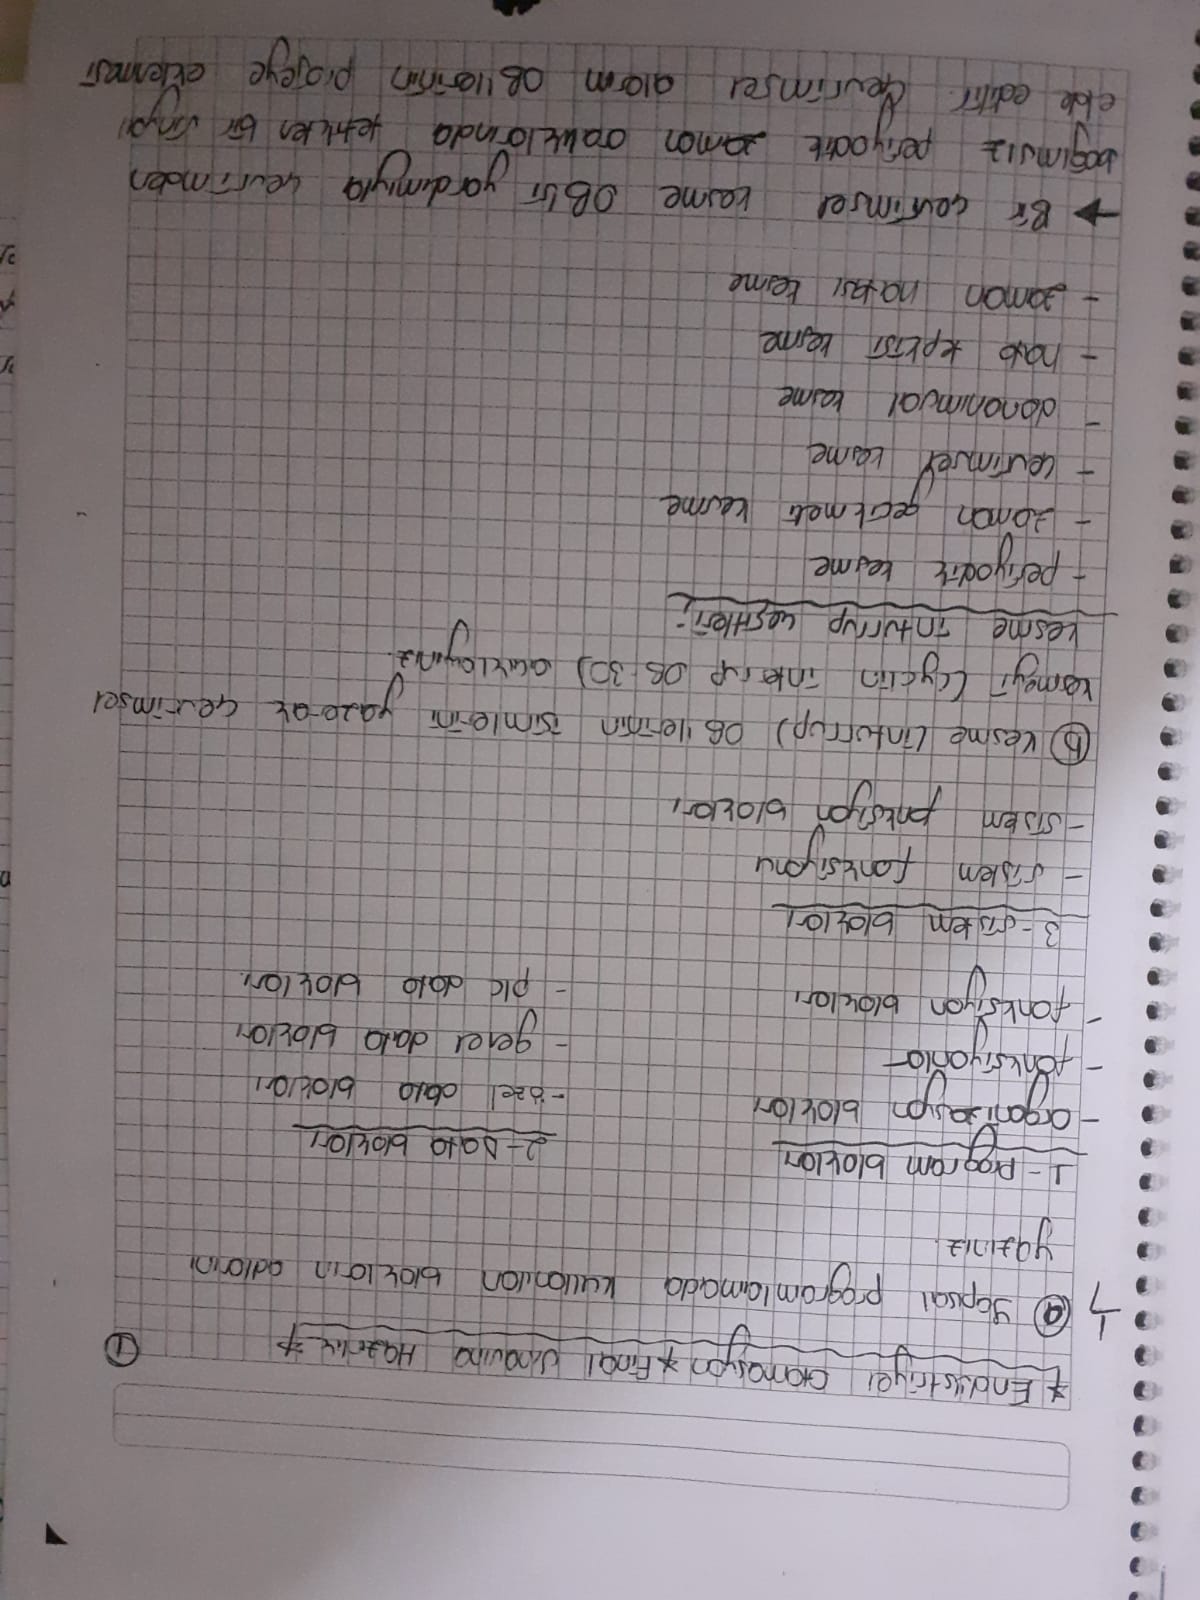 * Endüstriyel Otomasyon * Final Sınavına Hazırlık *
1
1
a Yapısal programlamada kullanılan blokların adlarını
yazınız.
1- Program blokları
- organizasyon blokları
- fonksiyonlar
- fonksiyon blokları
2- Data blokları
- özel data blokları
- genel data blokları
- plc data blokları.
3- sistem blokları
- sistem fonksiyonu
- sistem fonksiyon blokları
b Kesme (inturrup) OB'lerinin isimlerini yazarak çevrimsel
kesmeyi (cyclin interrup OB 30) açıklayınız.
kesme inturrup çeşitleri;
- periyodik kesme
- zaman gecikmeli kesme
- çevrimsel kesme
- donanımsal kesme
- hata tepkisi kesme
- zaman hatası kesme
→ Bir çevrimsel kesme OB'si yardımıyla çevrimden
bağımsız periyodik zaman aralıklarında bir sinyal
elde edilir. Çevrimsel alarm OB'lerinin projeye eklenmesi